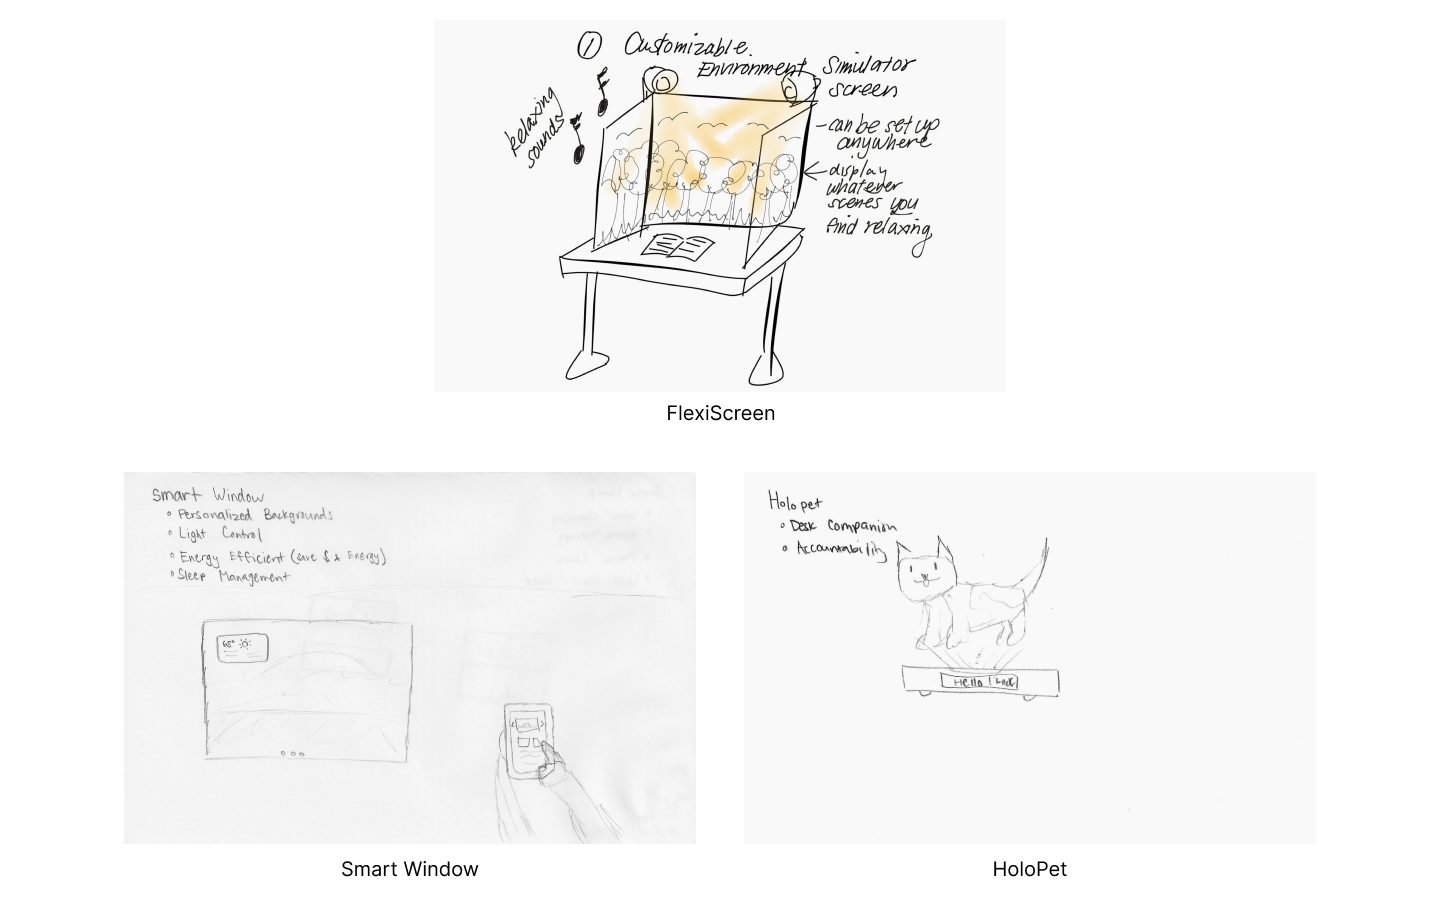 1 Customizable
Environment Simulator
screen
relaxing
sounds
- can be set up
anywhere
- display
whatever
scenes you
find relaxing
FlexiScreen
Smart Window
Personalized Backgrounds
Light Control
Energy Efficient (save $ & Energy)
Sleep Management
68°
Smart Window
Holopet
Desk Companion
Accountability
Hello!
HoloPet